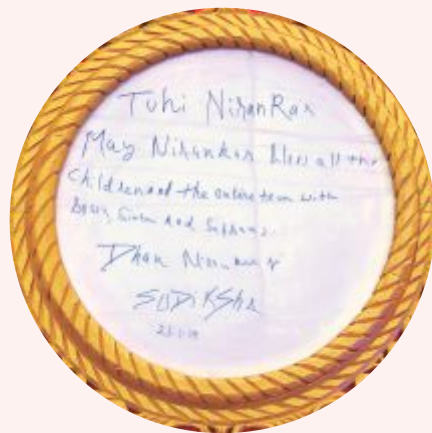 Tuhi NiranKar
May Nirankar bless all the
children and the entire team with
Sewa, Simran and Satsang.
Dhan Nirankar
SUDIKSHA